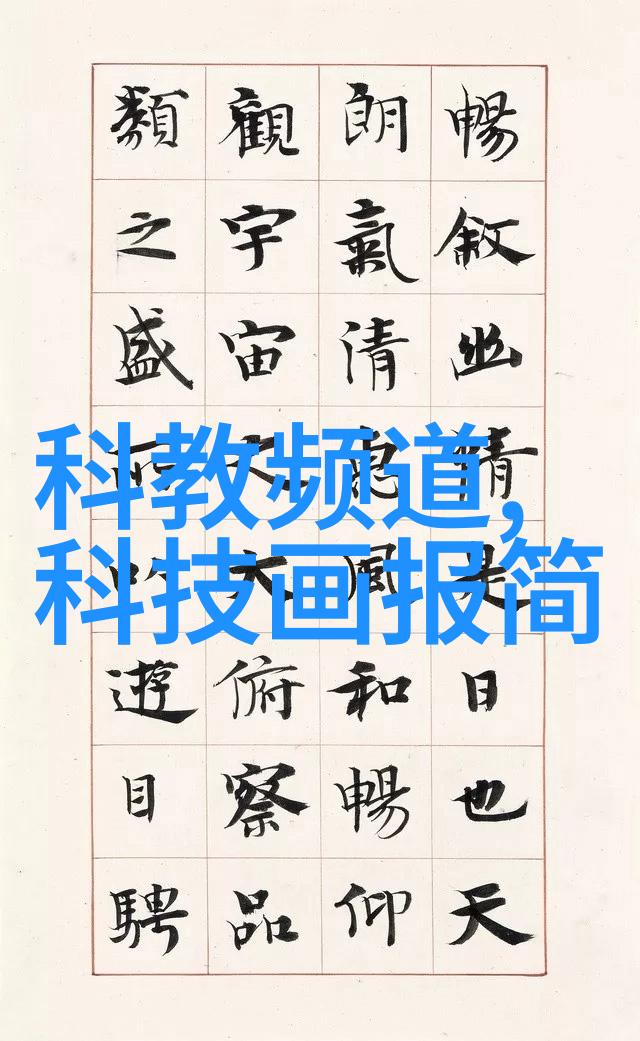 暢敘幽情是日也天
朗氣清惠風和暢仰
觀宇宙之大俯察品
類之盛所以遊目騁
科教频道,
科技画报简